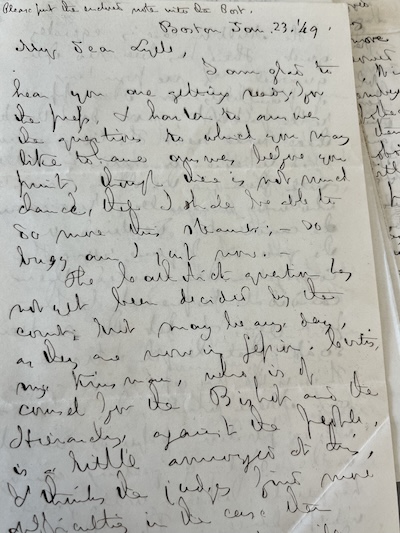 Please put the enclosed note into the Post.
Boston Jan. 23. '49.
My dear Lyell,
I am glad to
hear you are getting ready for
the press. I hasten to answer
the questions to which you may
like to have answers before you
print, though there is not much
chance, that I shall be able to
do more this steamer; – so
busy am I just now. –
The Catholick question has
not yet been decided by the
court, but may be any day,
as they are now in session. Curtis,
my kinsman, who is of
counsel for the Bishop and the
Hierarchy against the people,
is a little annoyed at this,
& thinks the judges find more
difficulties in the case than